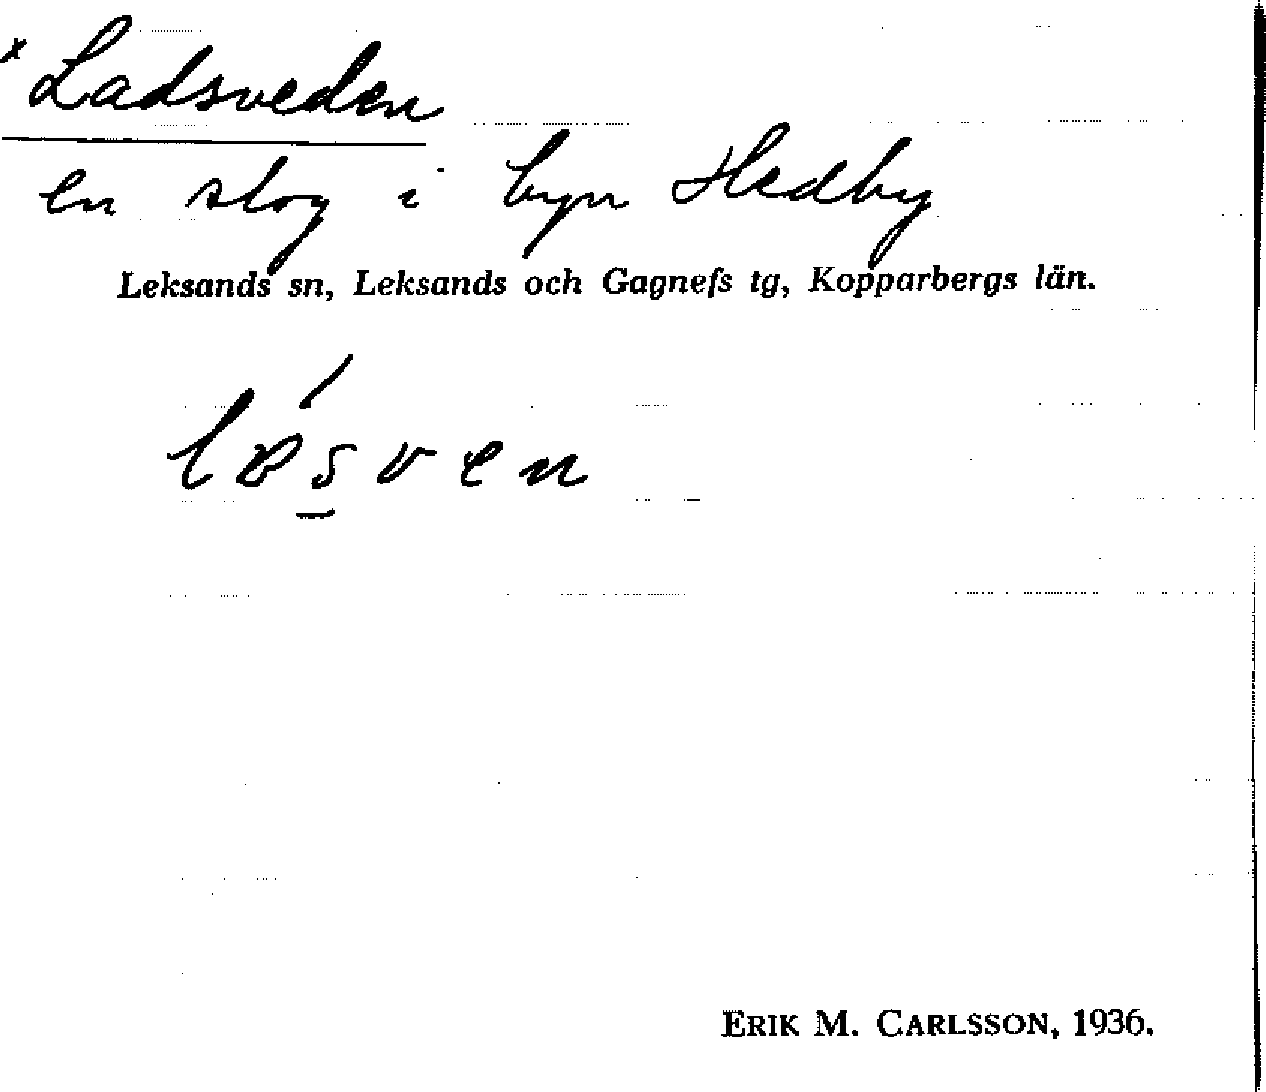 × Ladsveden
en slog i byn Hedby
Leksands sn, Leksands och Gagnefs tg, Kopparbergs län.
ERIK M. CARLSSON, 1936.